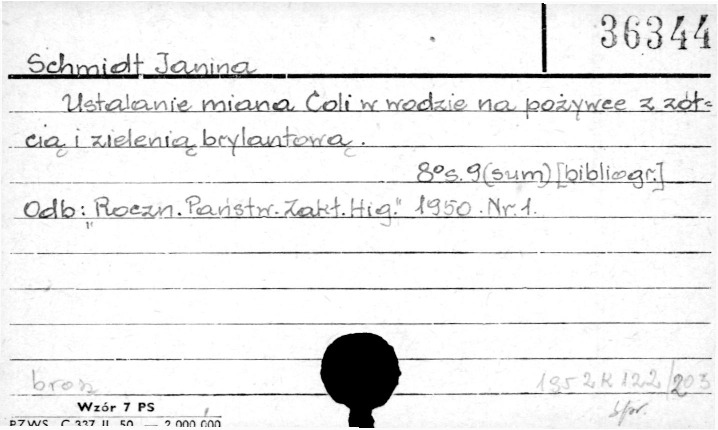 36344
Schmidt Janina
Ustalanie miana Coli w wodzie na pożywce z żół=
cią i zielenią brylantową.
8° s. 9 (sum) [bibliogr.]
Odb: "Roczn. Państw. Zakł. Hig." 1950. Nr. 1.
brosz
1952 K 122/203
spr.
Wzór 7 PS
PZWS C 337 II 50 — 2 000 000